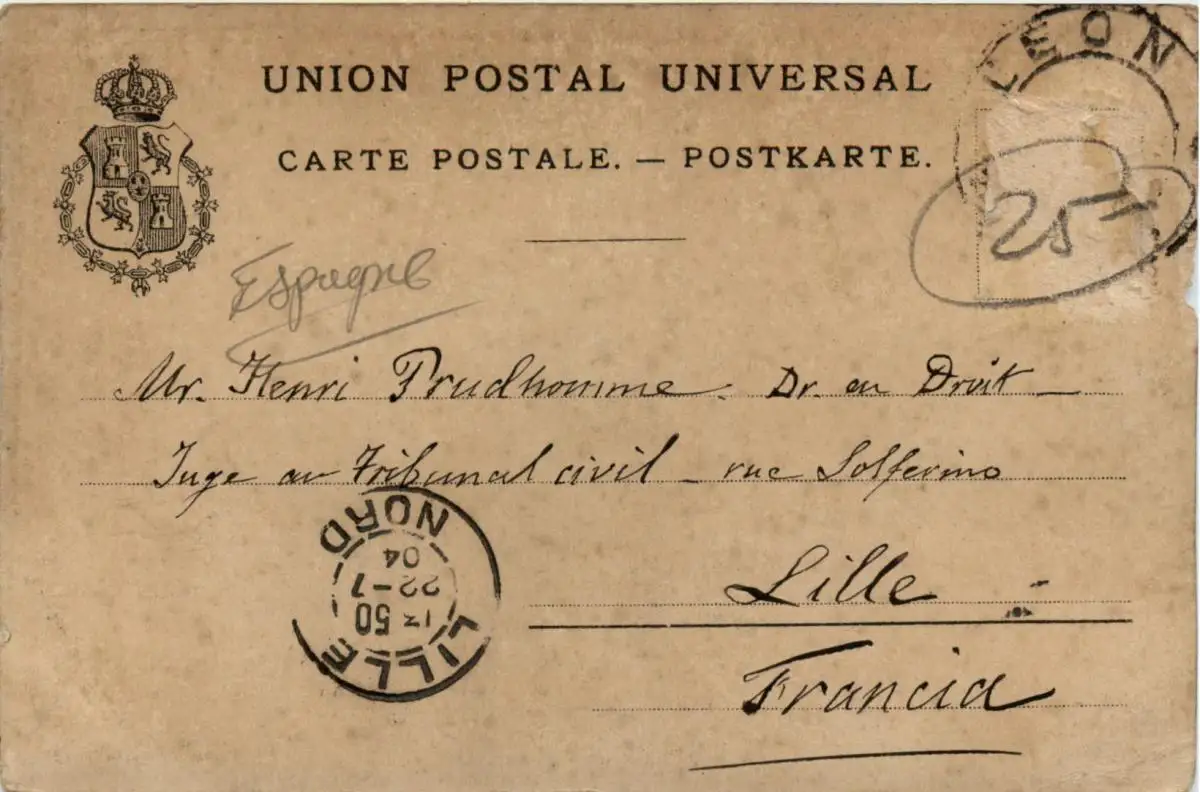 UNION POSTAL UNIVERSAL
CARTE POSTALE. — POSTKARTE.
LEON
25
Espagne
Mr. Henri Prudhomme. Dr. en Droit
Juge au Tribunal civil - rue Solferino
Lille
Francia
LILLE
50
22-7
04
NORD